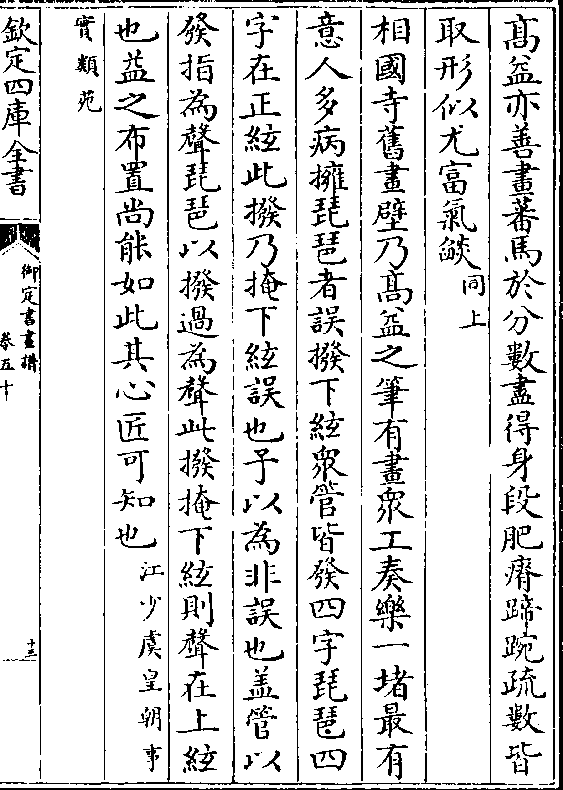 髙益亦善畫蕃馬於分數盡得身段肥瘠蹄踠疏數皆
取形似尤富氣燄同上
相國寺舊畫壁乃髙益之筆有畫衆工奏樂一堵最有
意人多病擁琵琶者誤撥下絃衆管皆發四字琵琶四
字在正絃此撥乃掩下絃誤也予以為非誤也盖管以
發指為聲琵琶以撥過為聲此撥掩下絃則聲在上絃
也益之布置尚能如此其心匠可知也江少虞皇朝事
實類苑
欽定四庫全書
御定書畫譜
卷五十
十三